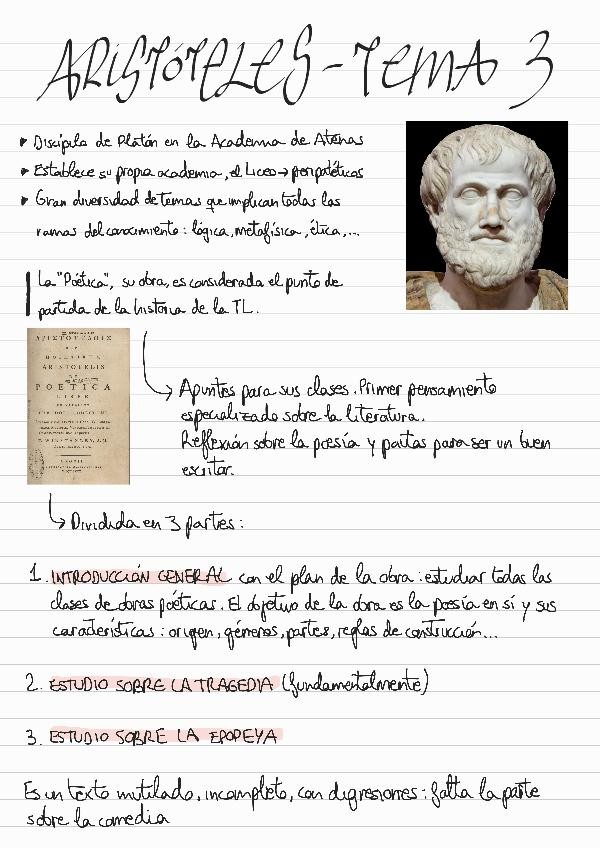 ARISTÓTELES - TEMA 3
▸ Discípulo de Platón en la Academia de Atenas
▸ Establece su propia academia, el Liceo → peripatéticos
▸ Gran diversidad de temas que implican todas las
ramas del conocimiento: lógica, metafísica, ética,...
La "Poética", su obra, es considerada el punto de
partida de la historia de la TL.
ARISTOTELIS
POETICA
LIBER
T. WINSTANLEY, A.M.
Apuntes para sus clases. Primer pensamiento
especializado sobre la literatura.
Reflexión sobre la poesía y pautas para ser un buen
escritor.
Dividida en 3 partes:
1. INTRODUCCIÓN GENERAL con el plan de la obra: estudiar todas las
clases de obras poéticas. El objetivo de la obra es la poesía en sí y sus
características: origen, géneros, partes, reglas de construcción...
2. ESTUDIO SOBRE LA TRAGEDIA (fundamentalmente)
3. ESTUDIO SOBRE LA EPOPEYA
Es un texto mutilado, incompleto, con digresiones: falta la parte
sobre la comedia